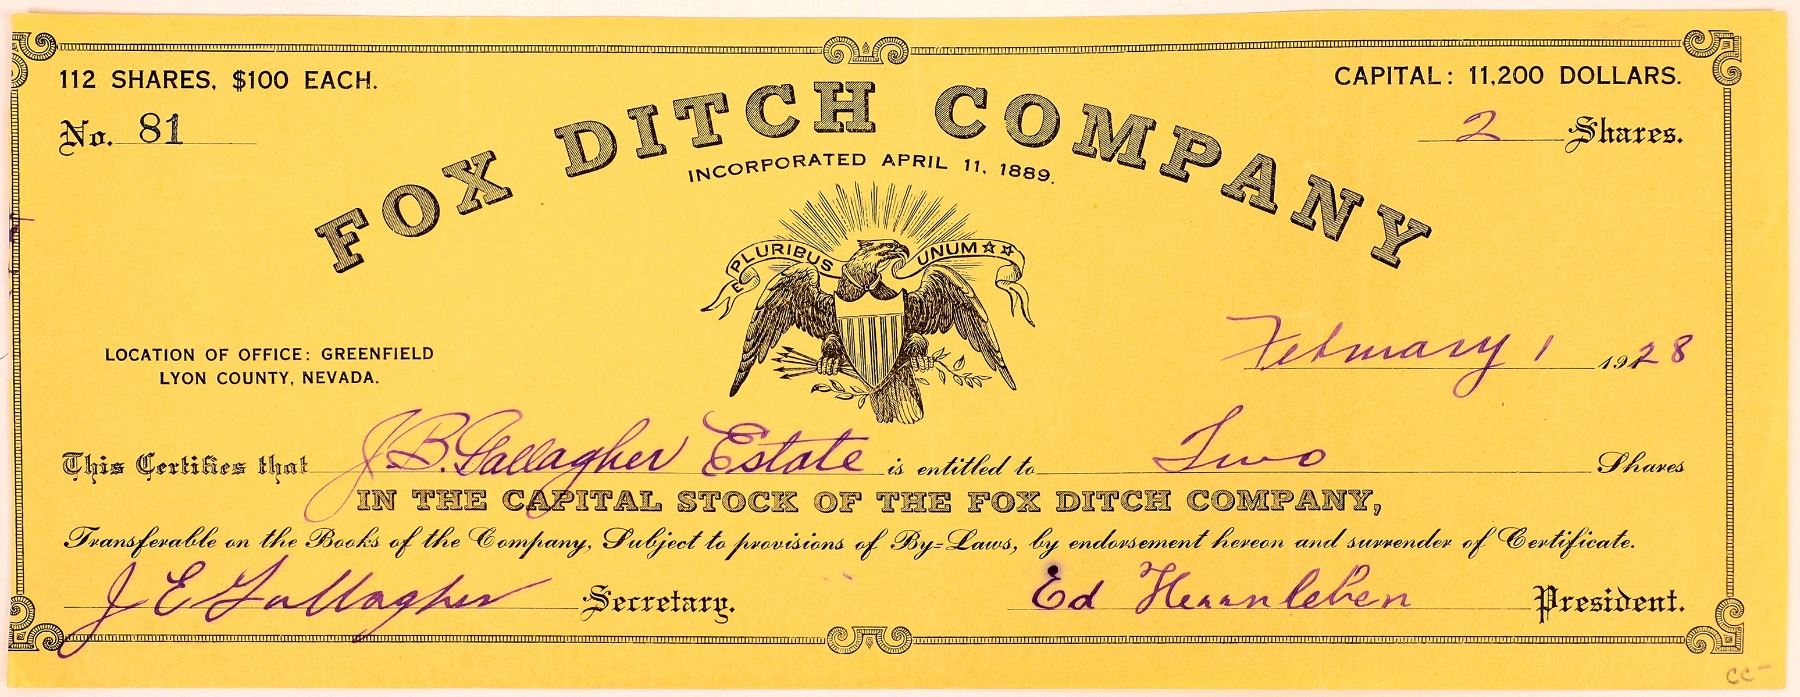 112 SHARES, $100 EACH.
CAPITAL: 11,200 DOLLARS.
No. 81
2 Shares.
FOX DITCH COMPANY
INCORPORATED APRIL 11, 1889.
E PLURIBUS UNUM
LOCATION OF OFFICE: GREENFIELD
LYON COUNTY, NEVADA.
February 1 1928
This Certifies that J.B. Gallagher Estate is entitled to Two Shares
IN THE CAPITAL STOCK OF THE FOX DITCH COMPANY,
Transferable on the Books of the Company, Subject to provisions of By-Laws, by endorsement hereon and surrender of Certificate.
J E Gallagher Secretary.
Ed President.
CC-